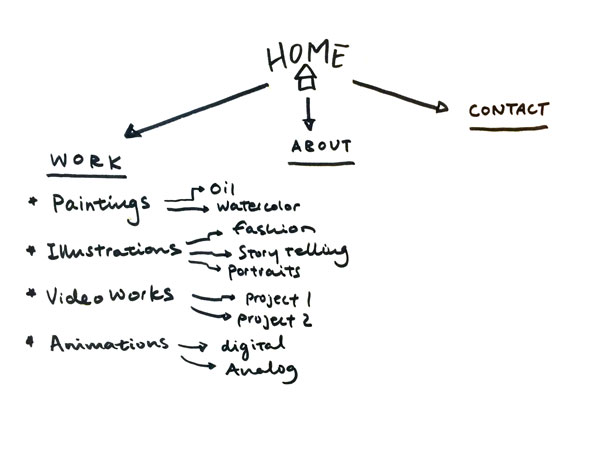 HOME
CONTACT
ABOUT
WORK
* Paintings
Oil
watercolor
* Illustrations
fashion
Story telling
portraits
* Video Works
project 1
project 2
* Animations
digital
Analog